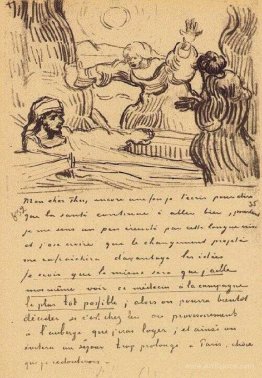 Mon cher Theo, encore une fois je t'écris pour dire
que la santé continue à aller bien, pourtant
je me sens un peu éreinté par cette longue crise
et j'ose croire que le changement projeté
me rafraichira davantage les idées
Je crois que le mieux sera que j'aille
moi même voir ce médecin à la campagne
le plus tot possible, alors on pourra bientot
décider si c'est chez lui ou provisoirement
à l'auberge que j'irai loger, et ainsi on
évitera un séjour trop prolongé à Paris, chose
que je redouterais.